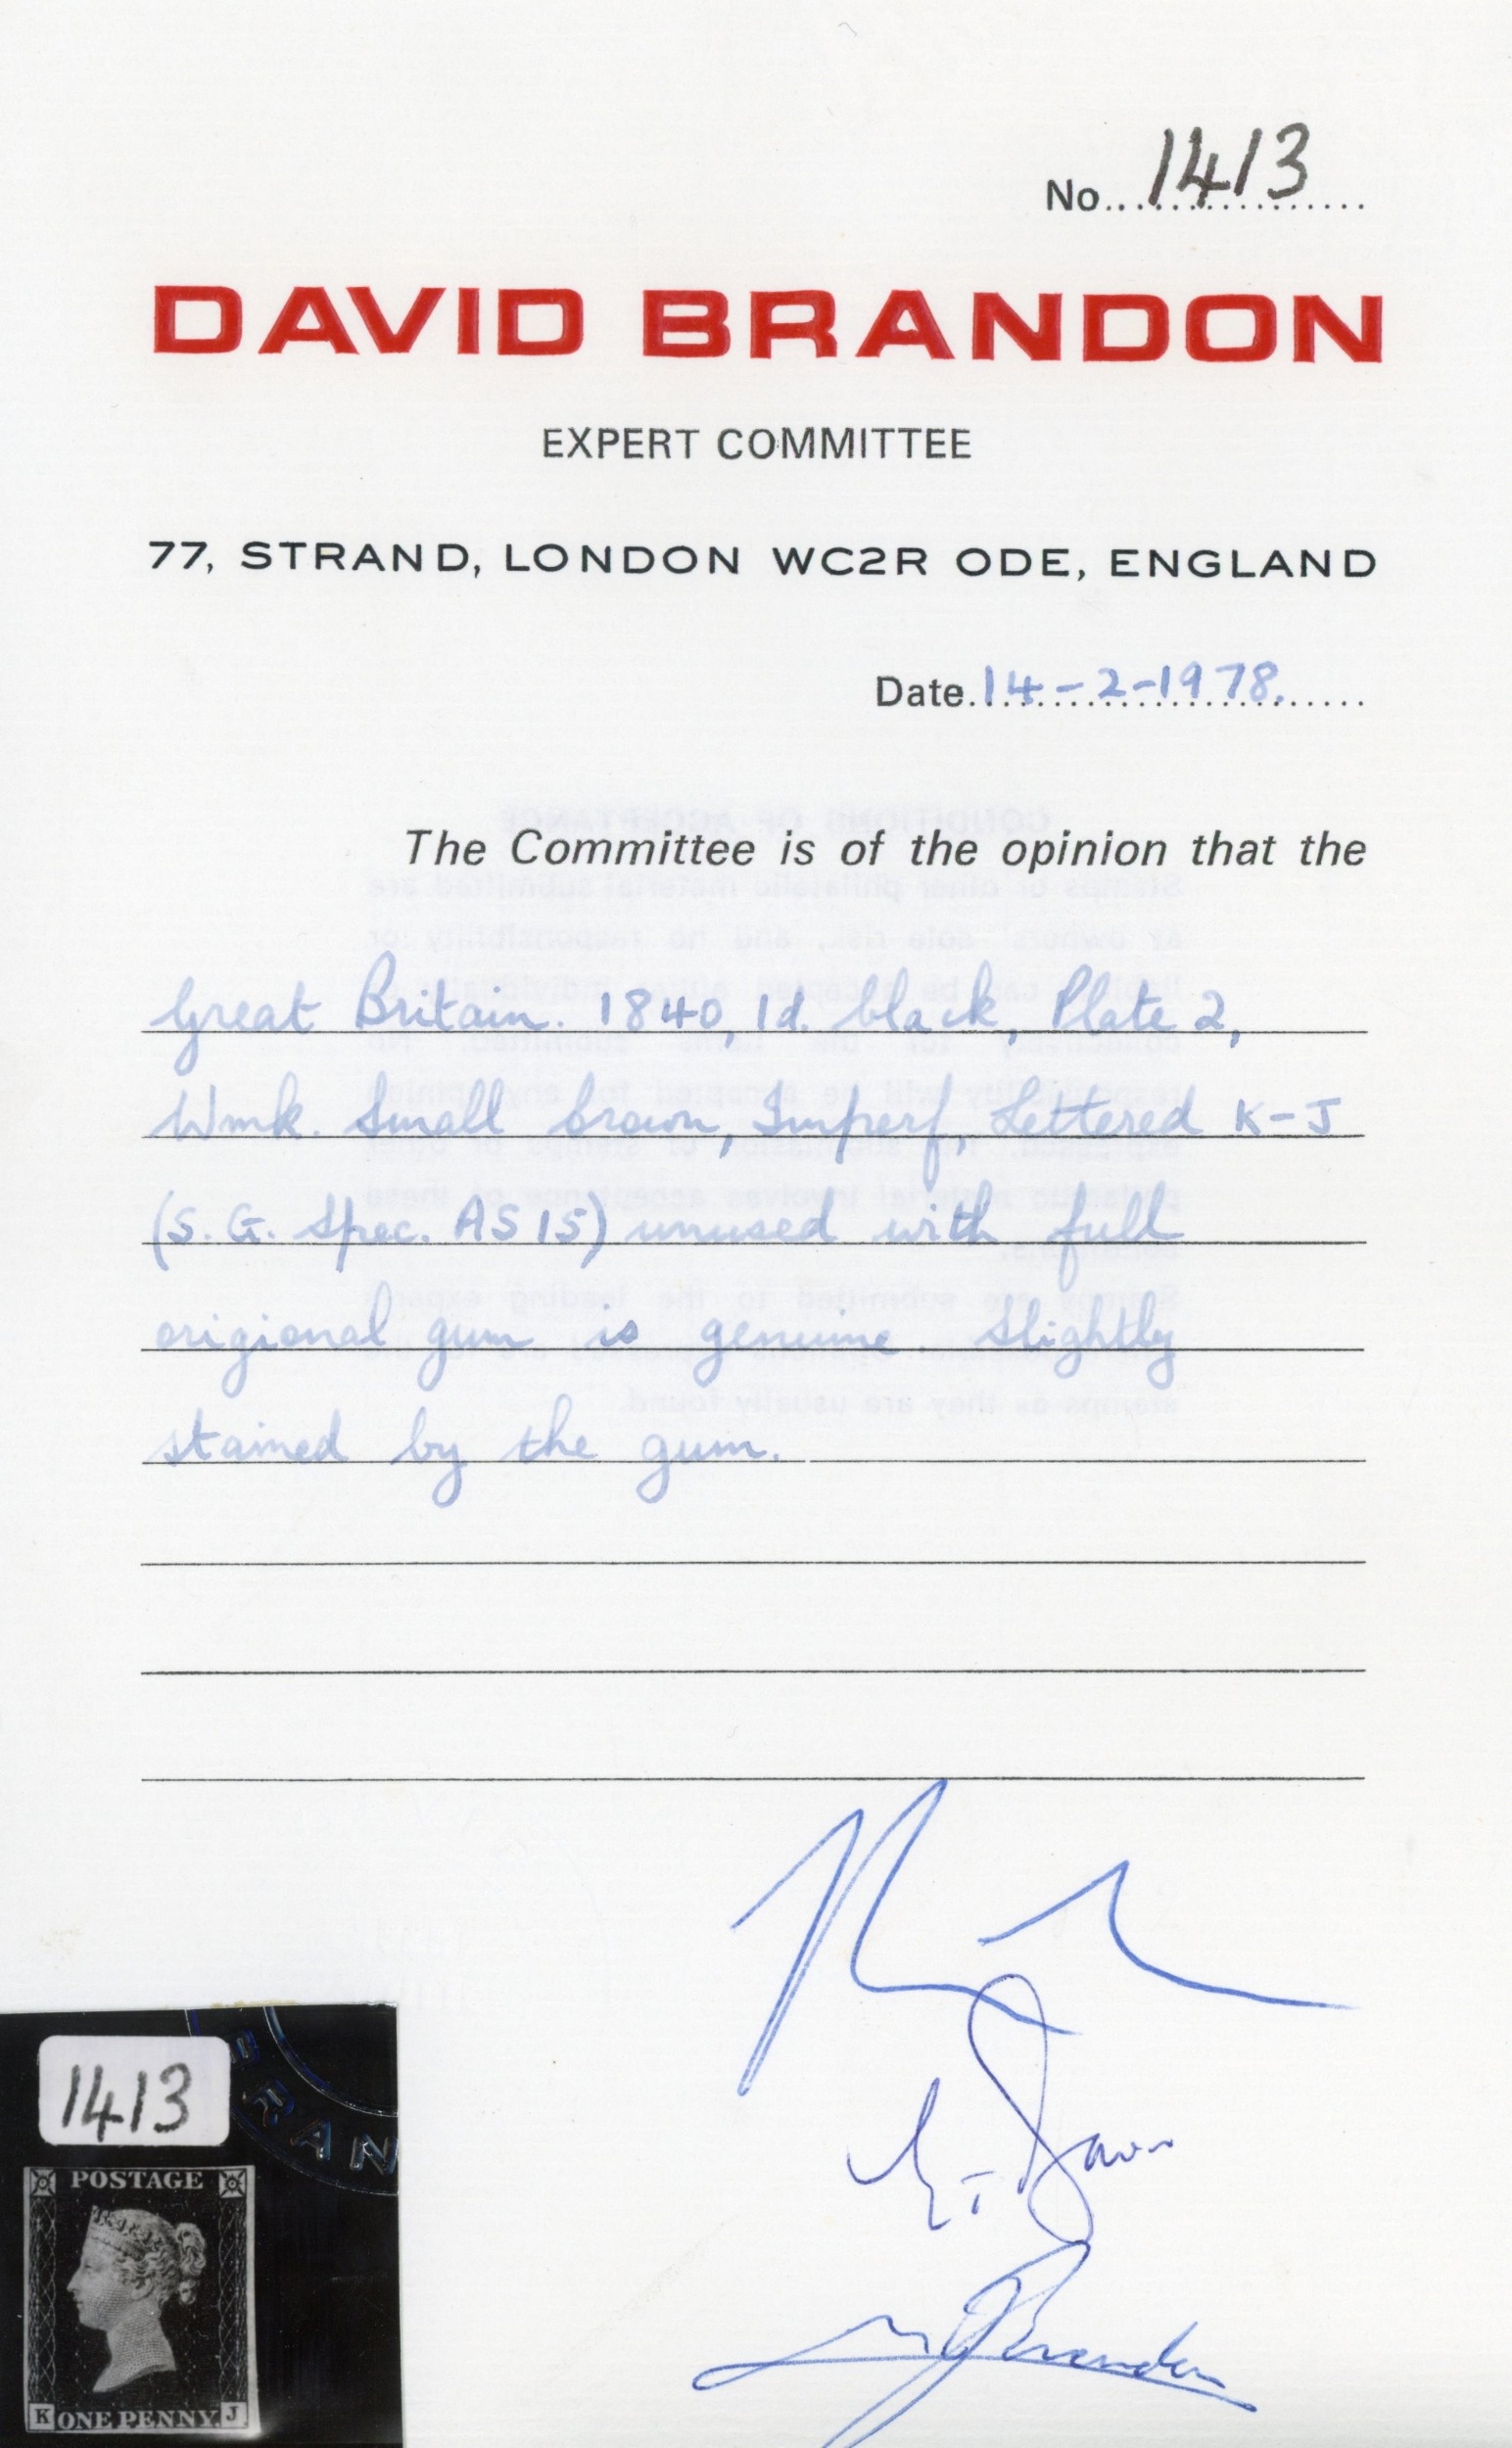 No. 1413
DAVID BRANDON
EXPERT COMMITTEE
77, STRAND, LONDON WC2R ODE, ENGLAND
Date 14-2-1978.
The Committee is of the opinion that the
Great Britain. 1840, 1d. black, Plate 2,
Wmk. Small Crown, Imperf, Lettered K-J
(S.G. Spec. AS15) unused with full
origional gum is genuine slightly
stained by the gum.
BRAN
1413
POSTAGE
K ONE PENNY. J
Brandon